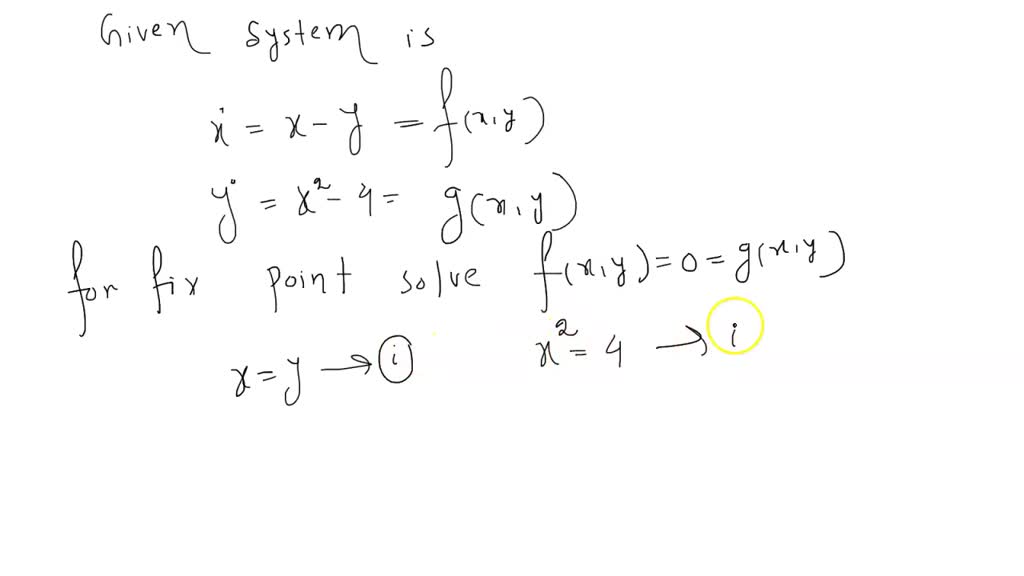 Given system is
ẋ = x - y = f(x, y)
ẏ = x² - 4 = g(x, y)
for fix point solve f(x, y) = 0 = g(x, y)
x = y → ⓘ x² = 4 → i